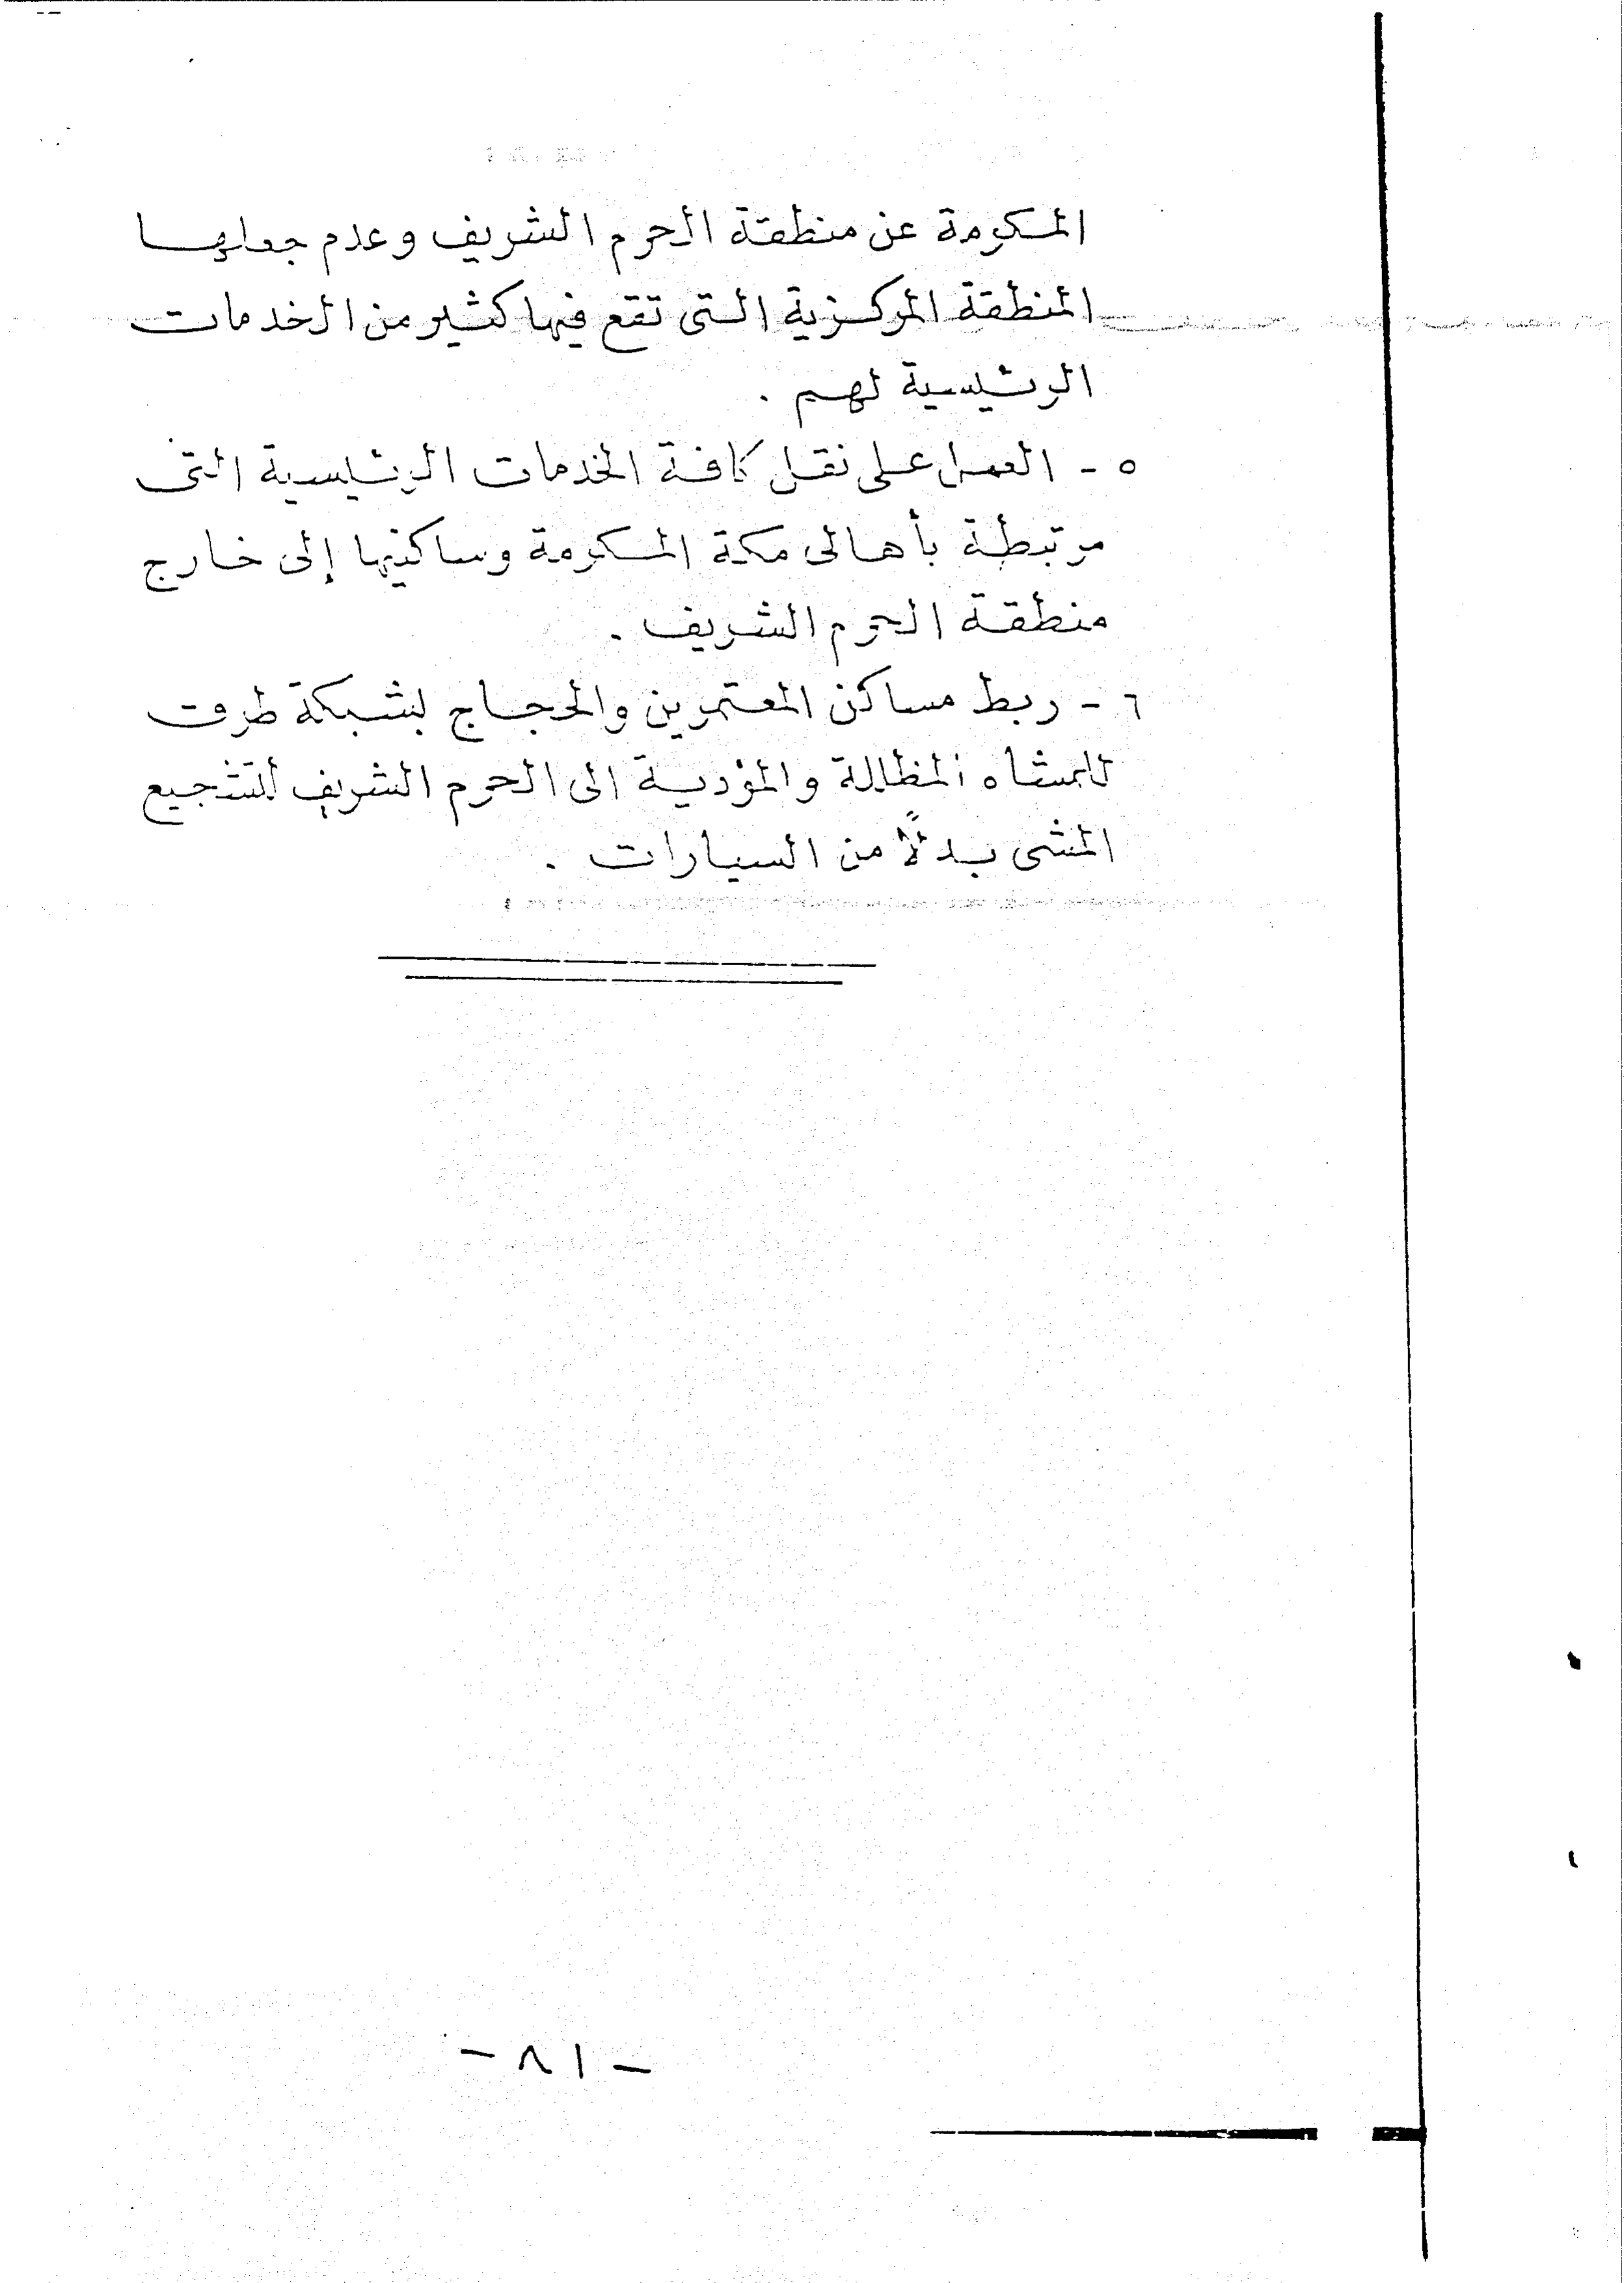 المكرمة عن منطقة الحرم الشريف وعدم جعلها
المنطقة المركزية التى تقع فيها كثير من الخدمات
الرئيسية لهم .
٥ - العمل على نقل كافة الخدمات الرئيسية التى
مرتبطة بأهالى مكة المكرمة وساكنيها إلى خارج
منطقة الحرم الشريف .
٦ - ربط مساكن المعتمرين والحجاج بشبكة طرق
للمشاه المظللة والمؤدية الى الحرم الشريف لتشجيع
المشى بدلاً من السيارات .
- ٨١ -